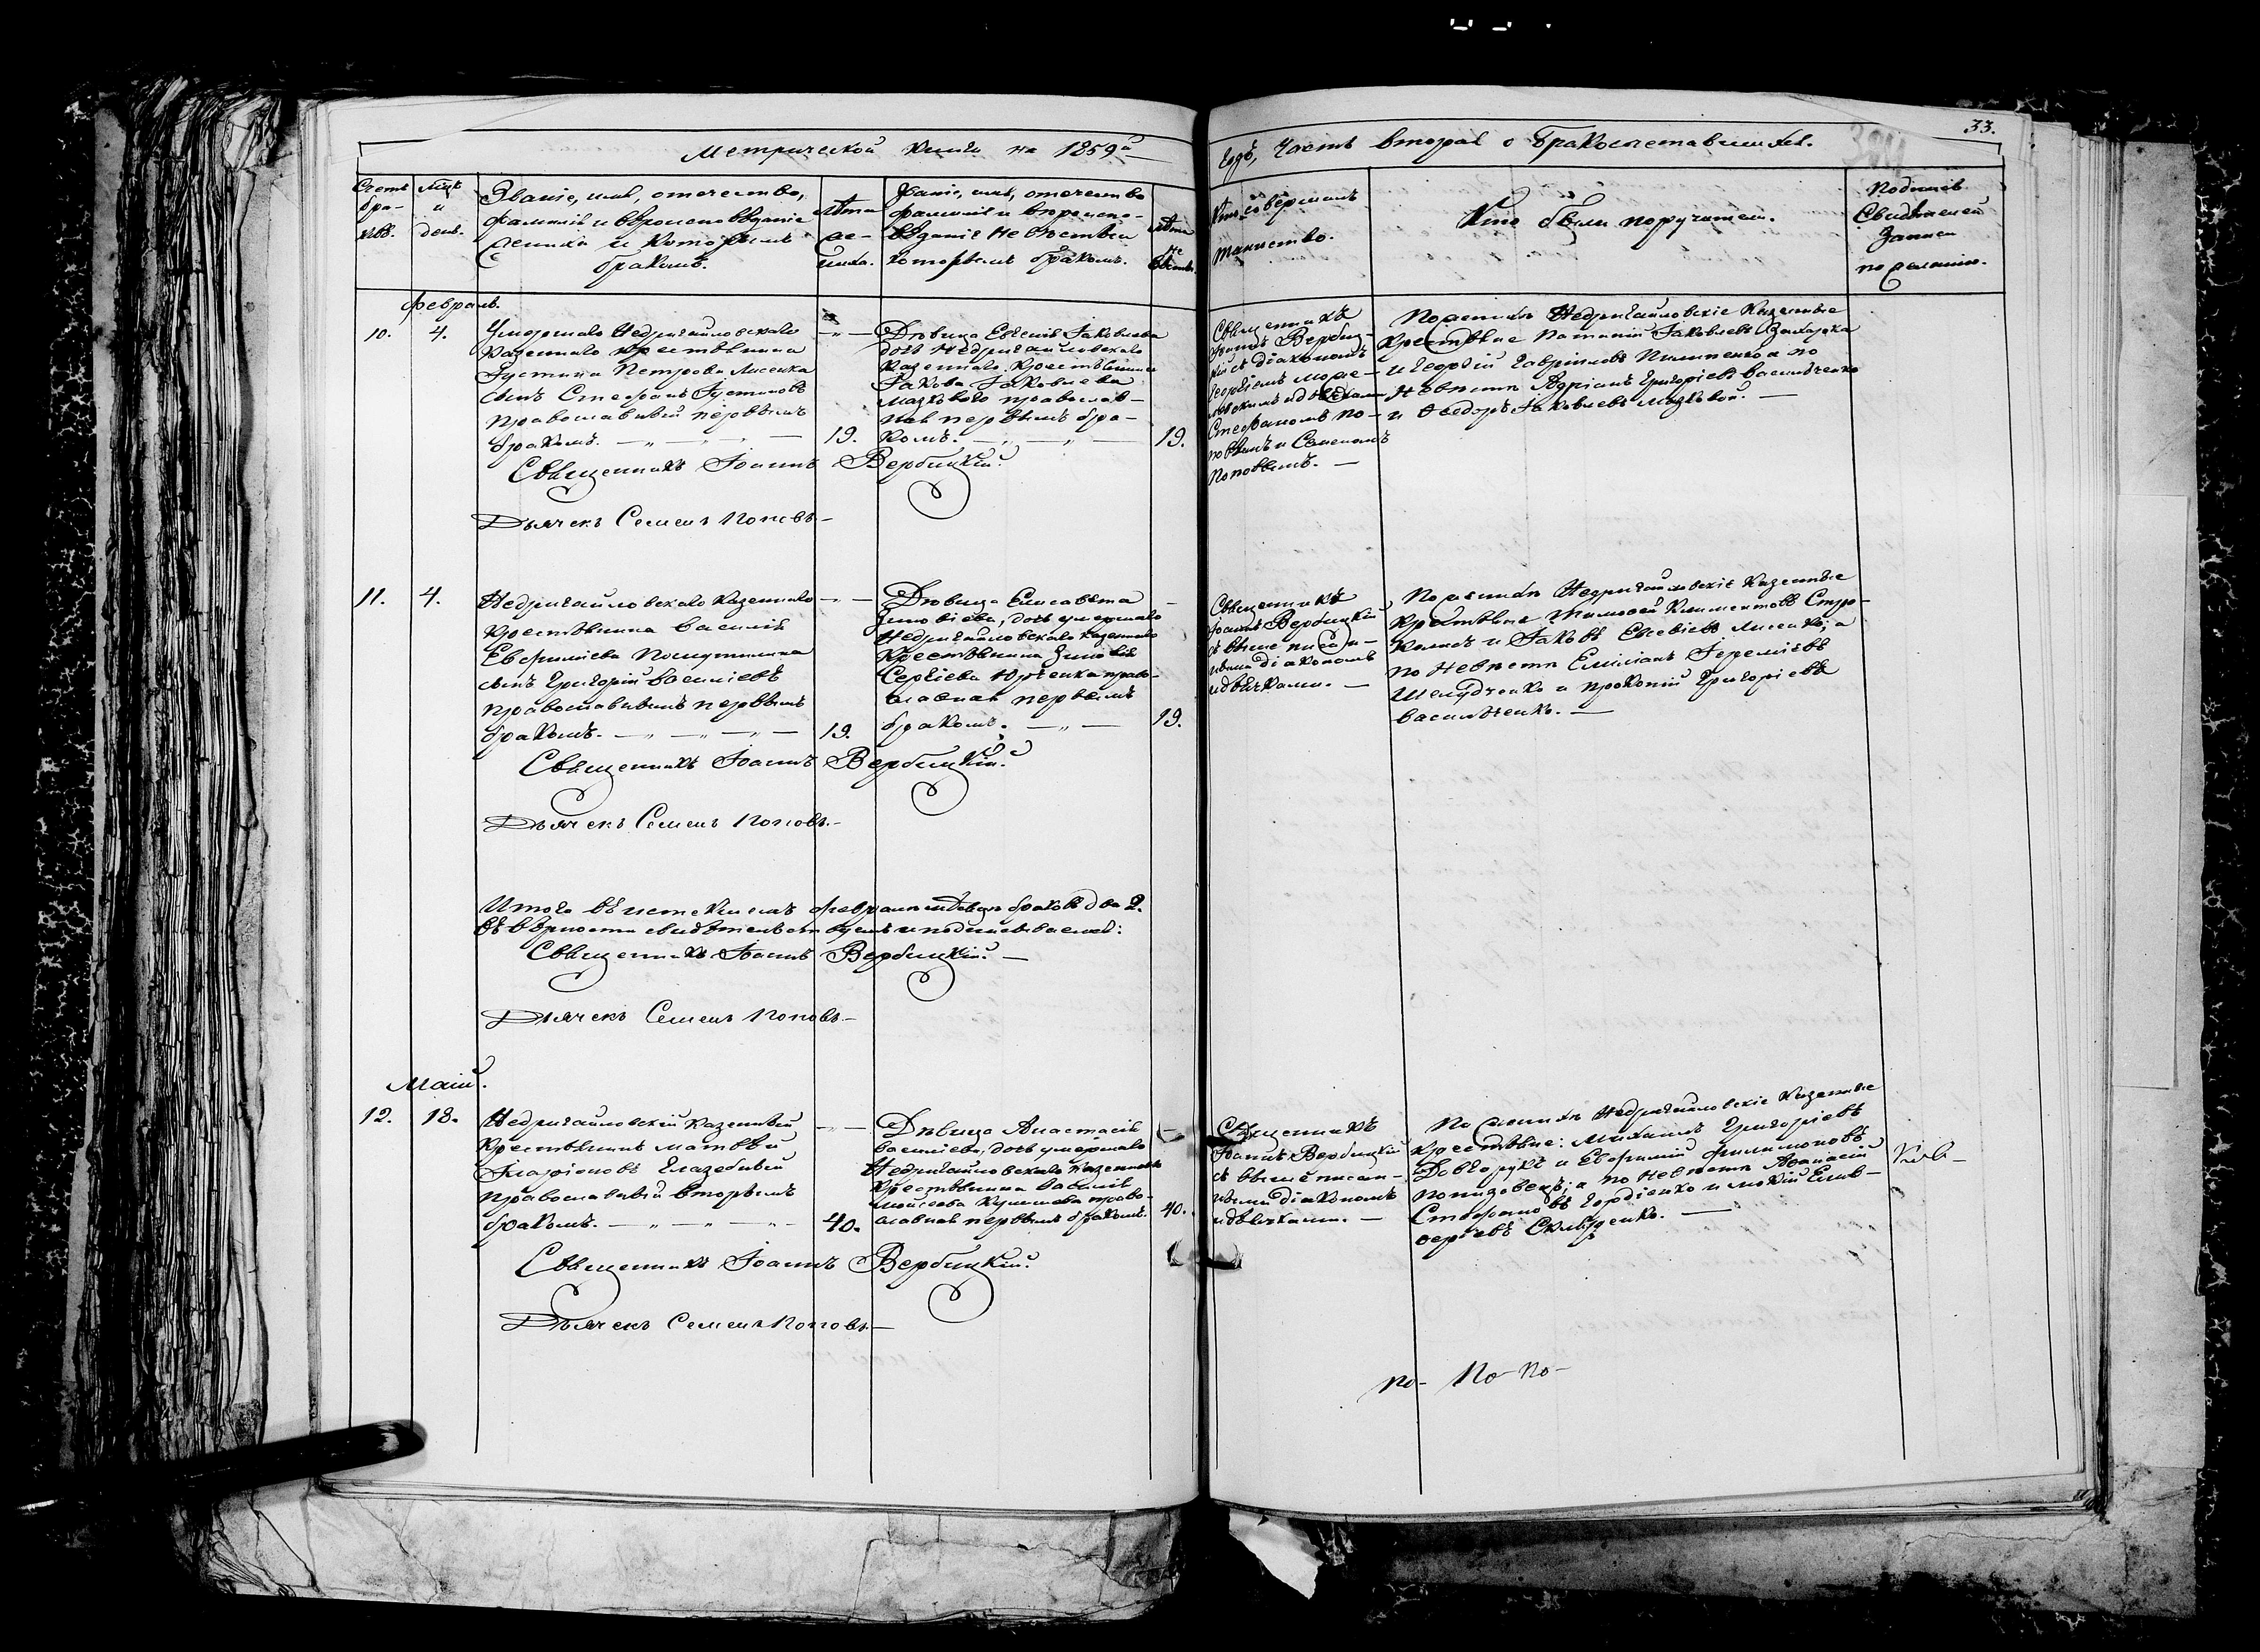 Метрической книги на 1859й
Годъ, Часть вторая о Бракосочетавшихся.
33.
Счетъ бра-
ковъ.
Мцъ
и
день.
Званіе, имя, отечество,
фамилія и вѣроисповѣданіе
жениха и которымъ
бракомъ.
Лѣта
же-
ниха.
Званіе, имя, отечество
фамилія и вѣроиспо-
вѣданіе невѣсты и
которымъ бракомъ.
Лѣта
не
вѣсты.
Кто совершалъ
таинство.
Кто были поручители.
Подпись
Свидѣтелей
Записи
по желанію.
Февраль.
10.
4.
Умершаго Недригайловскаго
казеннаго крестьянина
Іустина Петрова Лисенка
сынъ Стефанъ Іустиновъ
православный первымъ
бракомъ.
19.
Дѣвица Евгенія Іаковлева
дочь Недригайловскаго
казеннаго крестьянина
Іакова Іаковлева
Мазковаго православ-
ная первымъ бра-
комъ.
19.
Священникъ
Іоаннъ Вербиц-
кій съ діакономъ
Георгіемъ
и дьячками
Стефаномъ По-
повымъ и Семеномъ
Поповымъ.
По женихѣ Недригайловскіе казенные
крестьяне Іаковлевъ Захарка
и Георгій Гавріиловъ Пилипенко а по
невѣстѣ Адріанъ Григоріевъ Василченко
и Ѳеодоръ Іаковлевъ Мазковой.
Священникъ Іоаннъ Вербицкій.
Дьячекъ Семенъ Поповъ.
11.
4.
Недригайловскаго казеннаго
крестьянина Василія
Евфиміева
сынъ Григорій Василіевъ
православнымъ первымъ
бракомъ.
19.
Дѣвица Елисавета
Зиновіева, дочь умершаго
Недригайловскаго казеннаго
крестьянина Зиновія
Сергіева Юрченка право-
славная первымъ
бракомъ.
19.
Священникъ
Іоаннъ Вербицкій
съ выше писан-
ными діакономъ
и дьячками.
По женихѣ Недригайловскіе казенные
крестьяне Тимоѳей Климентовъ
и Іаковъ Евсевіевъ Лисенко; а
по невѣстѣ Емиліанъ Іереміевъ
Шелудченко и Прокопій Григоріевъ
Василченко.
Священникъ Іоаннъ Вербицкій.
Дьячекъ Семенъ Поповъ.
Итого въ истекшемъ февралѣ мѣсяцѣ браковъ два 2.
въ вѣрности свидѣтельствуемъ и подписываемся:
Священникъ Іоаннъ Вербицкій.
Дьячекъ Семенъ Поповъ.
Маій.
12.
18.
Недригайловскій казенный
крестьянинъ Матвѣй
Иларіоновъ Глазебный
православный вторымъ
бракомъ.
40.
Дѣвица Анастасія
Василіева, дочь умершаго
Недригайловскаго казеннаго
крестьянина Василія
Моисеева Кушнева право-
славная первымъ бракомъ.
40.
Священникъ
Іоаннъ Вербицкій
съ выше писан-
ными діакономъ
и дьячками.
По женихѣ Недригайловскіе казенные
крестьяне: Михаилъ Григоріевъ
Довгорукъ и Евфимій Филимоновъ
Понизовецъ; а по невѣстѣ Аѳанасій
Стефановъ Гордіенко и Мокій Елев-
ѳеріевъ
Священникъ Іоаннъ Вербицкій.
Дьячекъ Семенъ Поповъ.
По- По По-